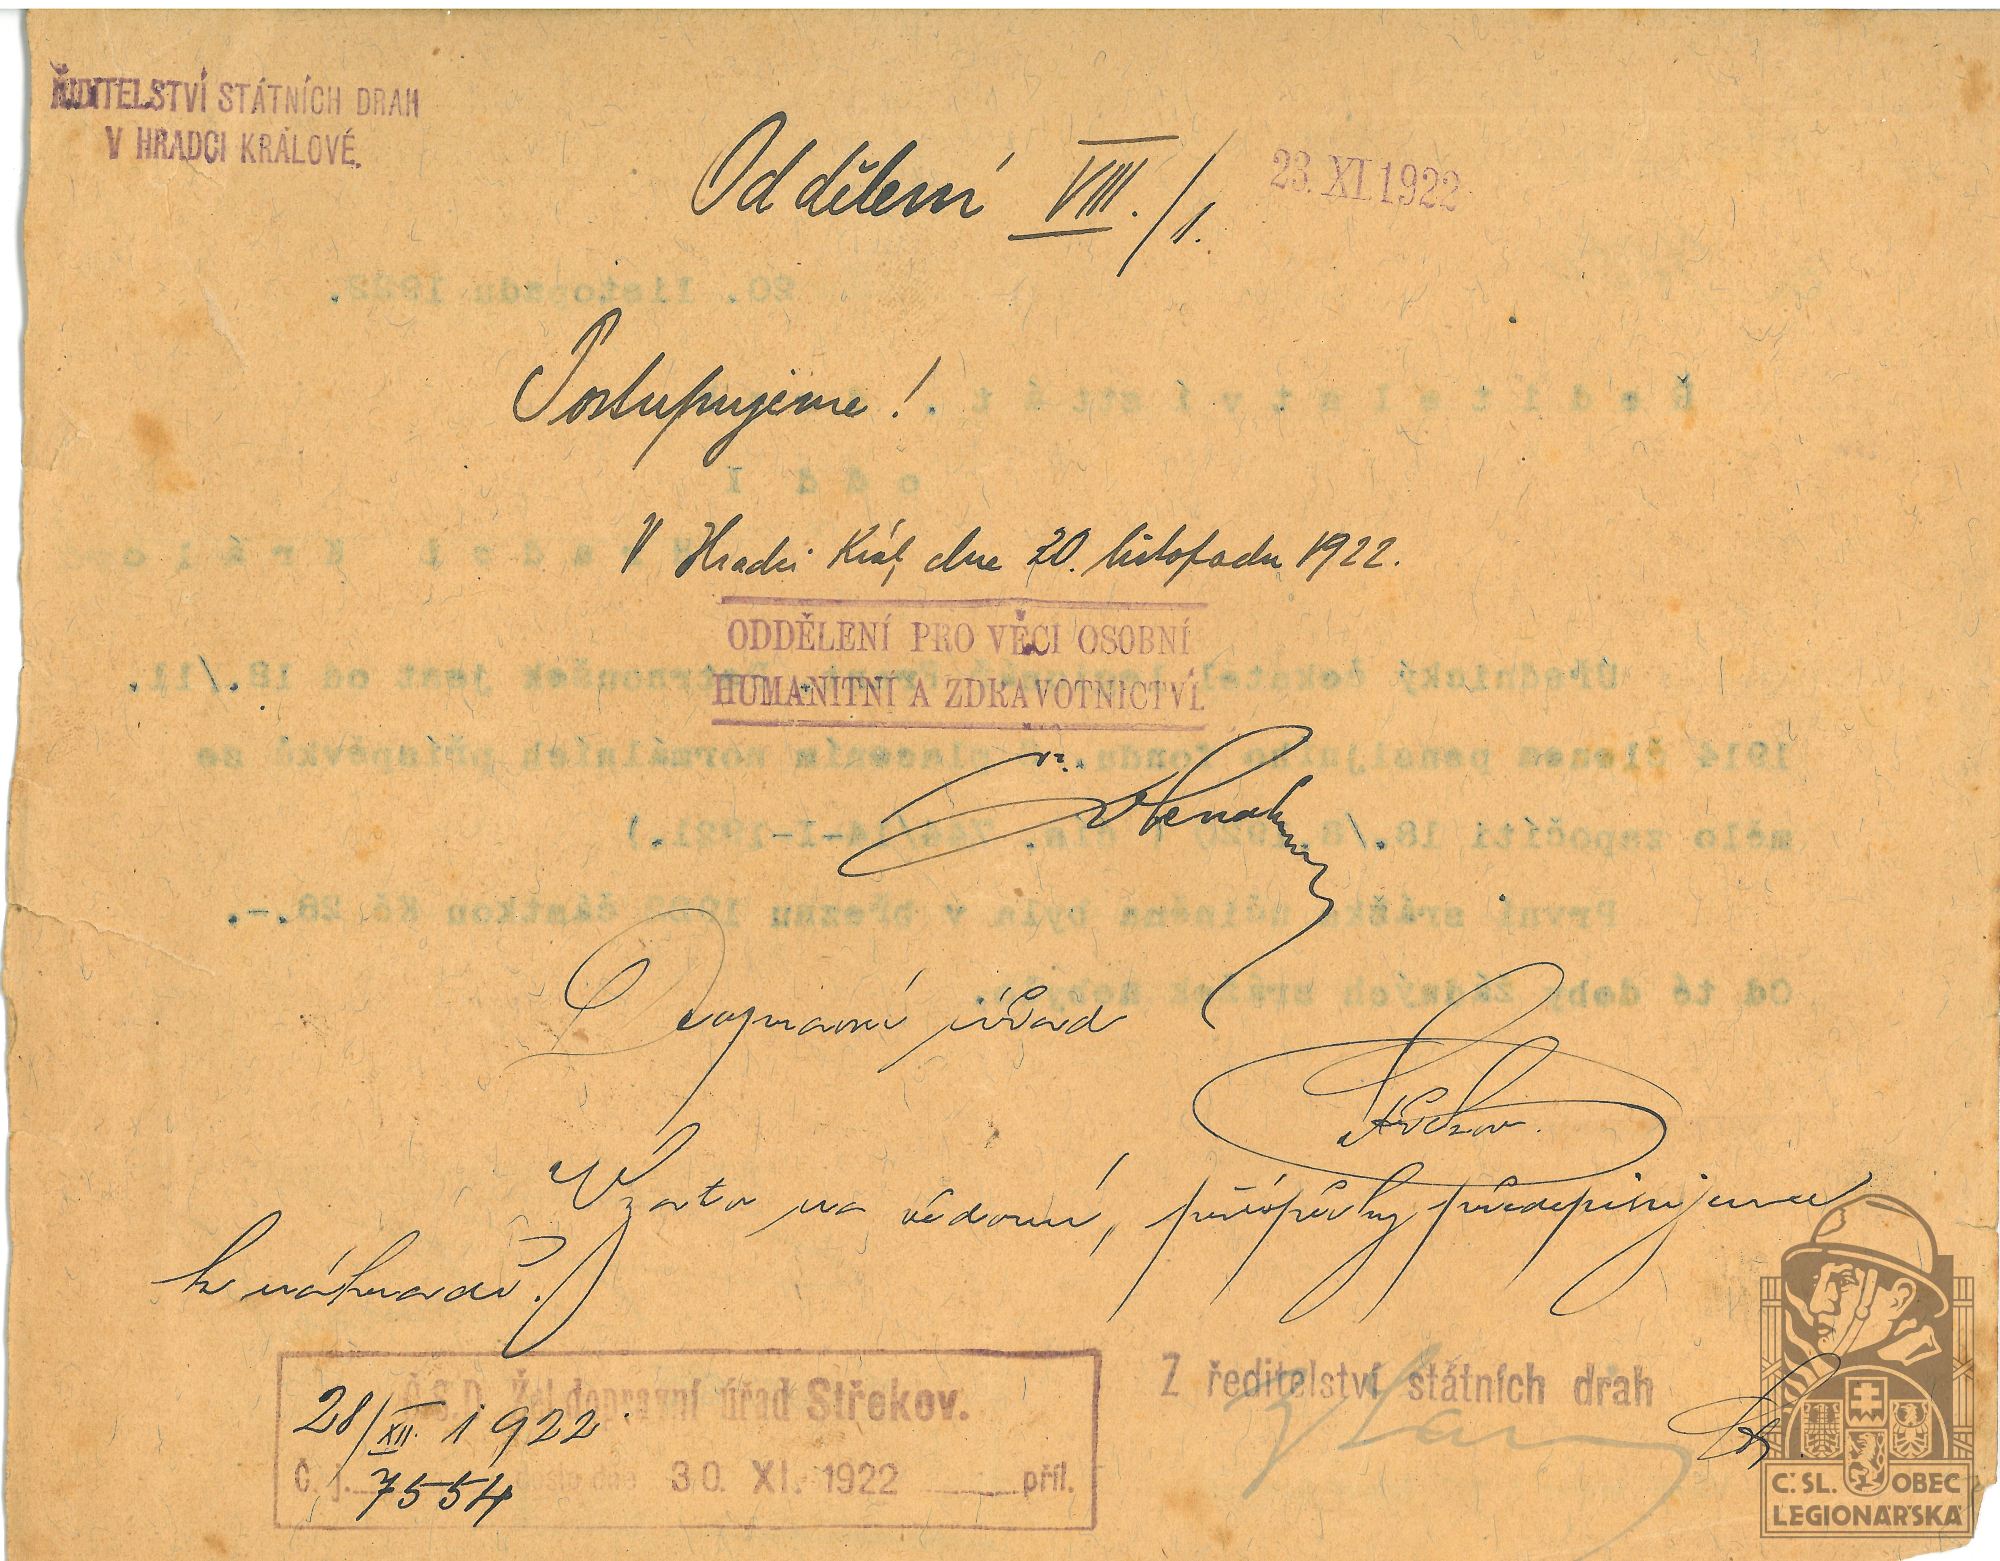 ŘEDITELSTVÍ STÁTNÍCH DRAH
V HRADCI KRÁLOVÉ.
Oddělení VIII./1.
23. XI. 1922
Postupujeme!
V Hradci Král, dne 20. listopadu 1922.
ODDĚLENÍ PRO VĚCI OSOBNÍ
HUMANITNÍ A ZDRAVOTNICTVÍ.
Dopravní úřad
Střekov.
Vzato na vědomí, příspěvky předepisujeme
k náhradě.
Č.S.D. Žel. dopravní úřad Střekov.
28/XII. 1922
Č. j. 7554 došlo dne 30. XI. 1922 příl.
Z ředitelství státních drah
Č. SL. OBEC
LEGIONÁŘSKÁ